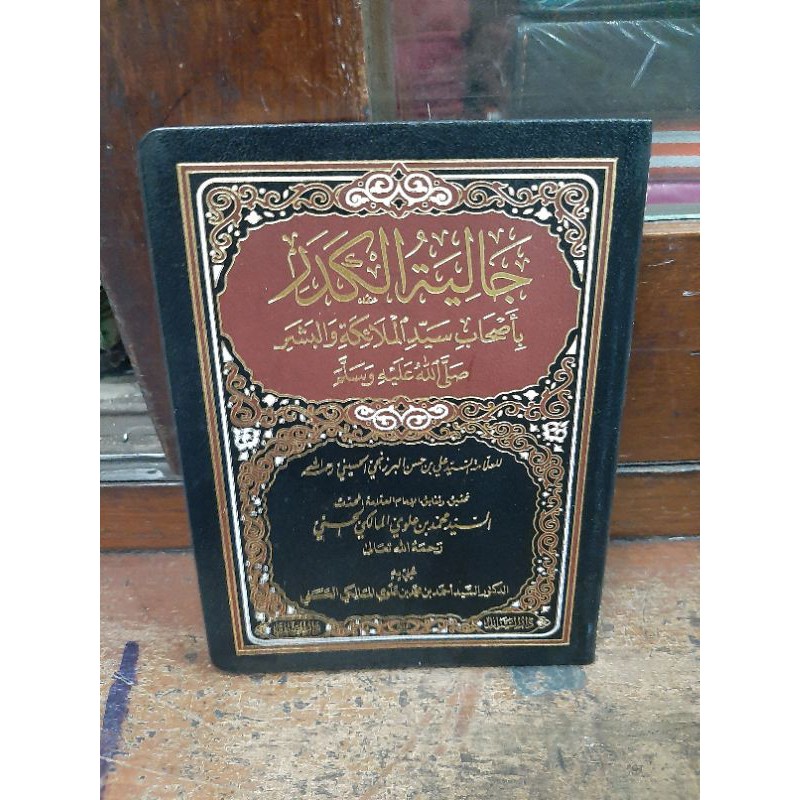 جَالِيَةُ الْكَدَرِ
بِأَصْحَابِ سَيِّدِ الْمَلَائِكَةِ وَالْبَشَرِ
صَلَّى اللهُ عَلَيْهِ وَسَلَّمَ
للعلامة السيد علي بن حسن البرزنجي الحسيني رحمه الله
تحقيق وتعليق الإمام العلامة المحدث
السيد محمد بن علوي المالكي الحسني
رحمه الله تعالى
الدكتور السيد أحمد بن محمد بن علوي المالكي الحسني